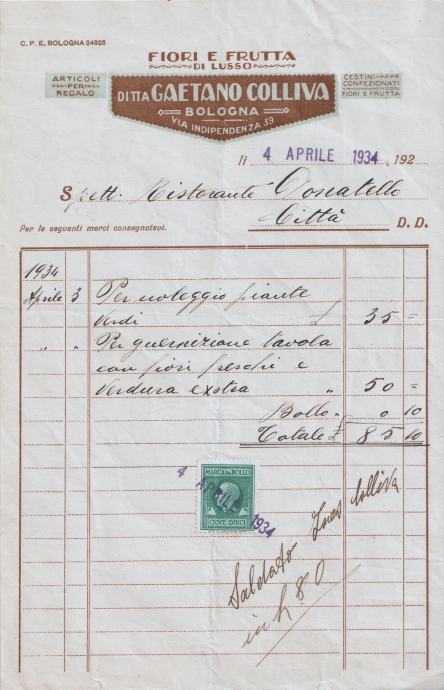 C. P. E. BOLOGNA 24928
FIORI E FRUTTA
DI LUSSO
ARTICOLI
PER
REGALO
DITTA GAETANO COLLIVA
BOLOGNA
VIA INDIPENDENZA 39
CESTINI
CONFEZIONATI
CON
FIORI E FRUTTA
li 4 APRILE 1934, 192
Spett. Ristorante Donatello
Città D. D.
Per le seguenti merci consegnatevi.
1934
Aprile 3 Per noleggio piante
verdi £ 35 =
" " Per guernizione tavola
con fiori freschi e
verdura extra " 50 =
Bollo " 0 10
Totale £ 85 10
MARCA DA BOLLO
CENT. DIECI
4 APRILE 1934
Saldato Ines Colliva
in L. 80